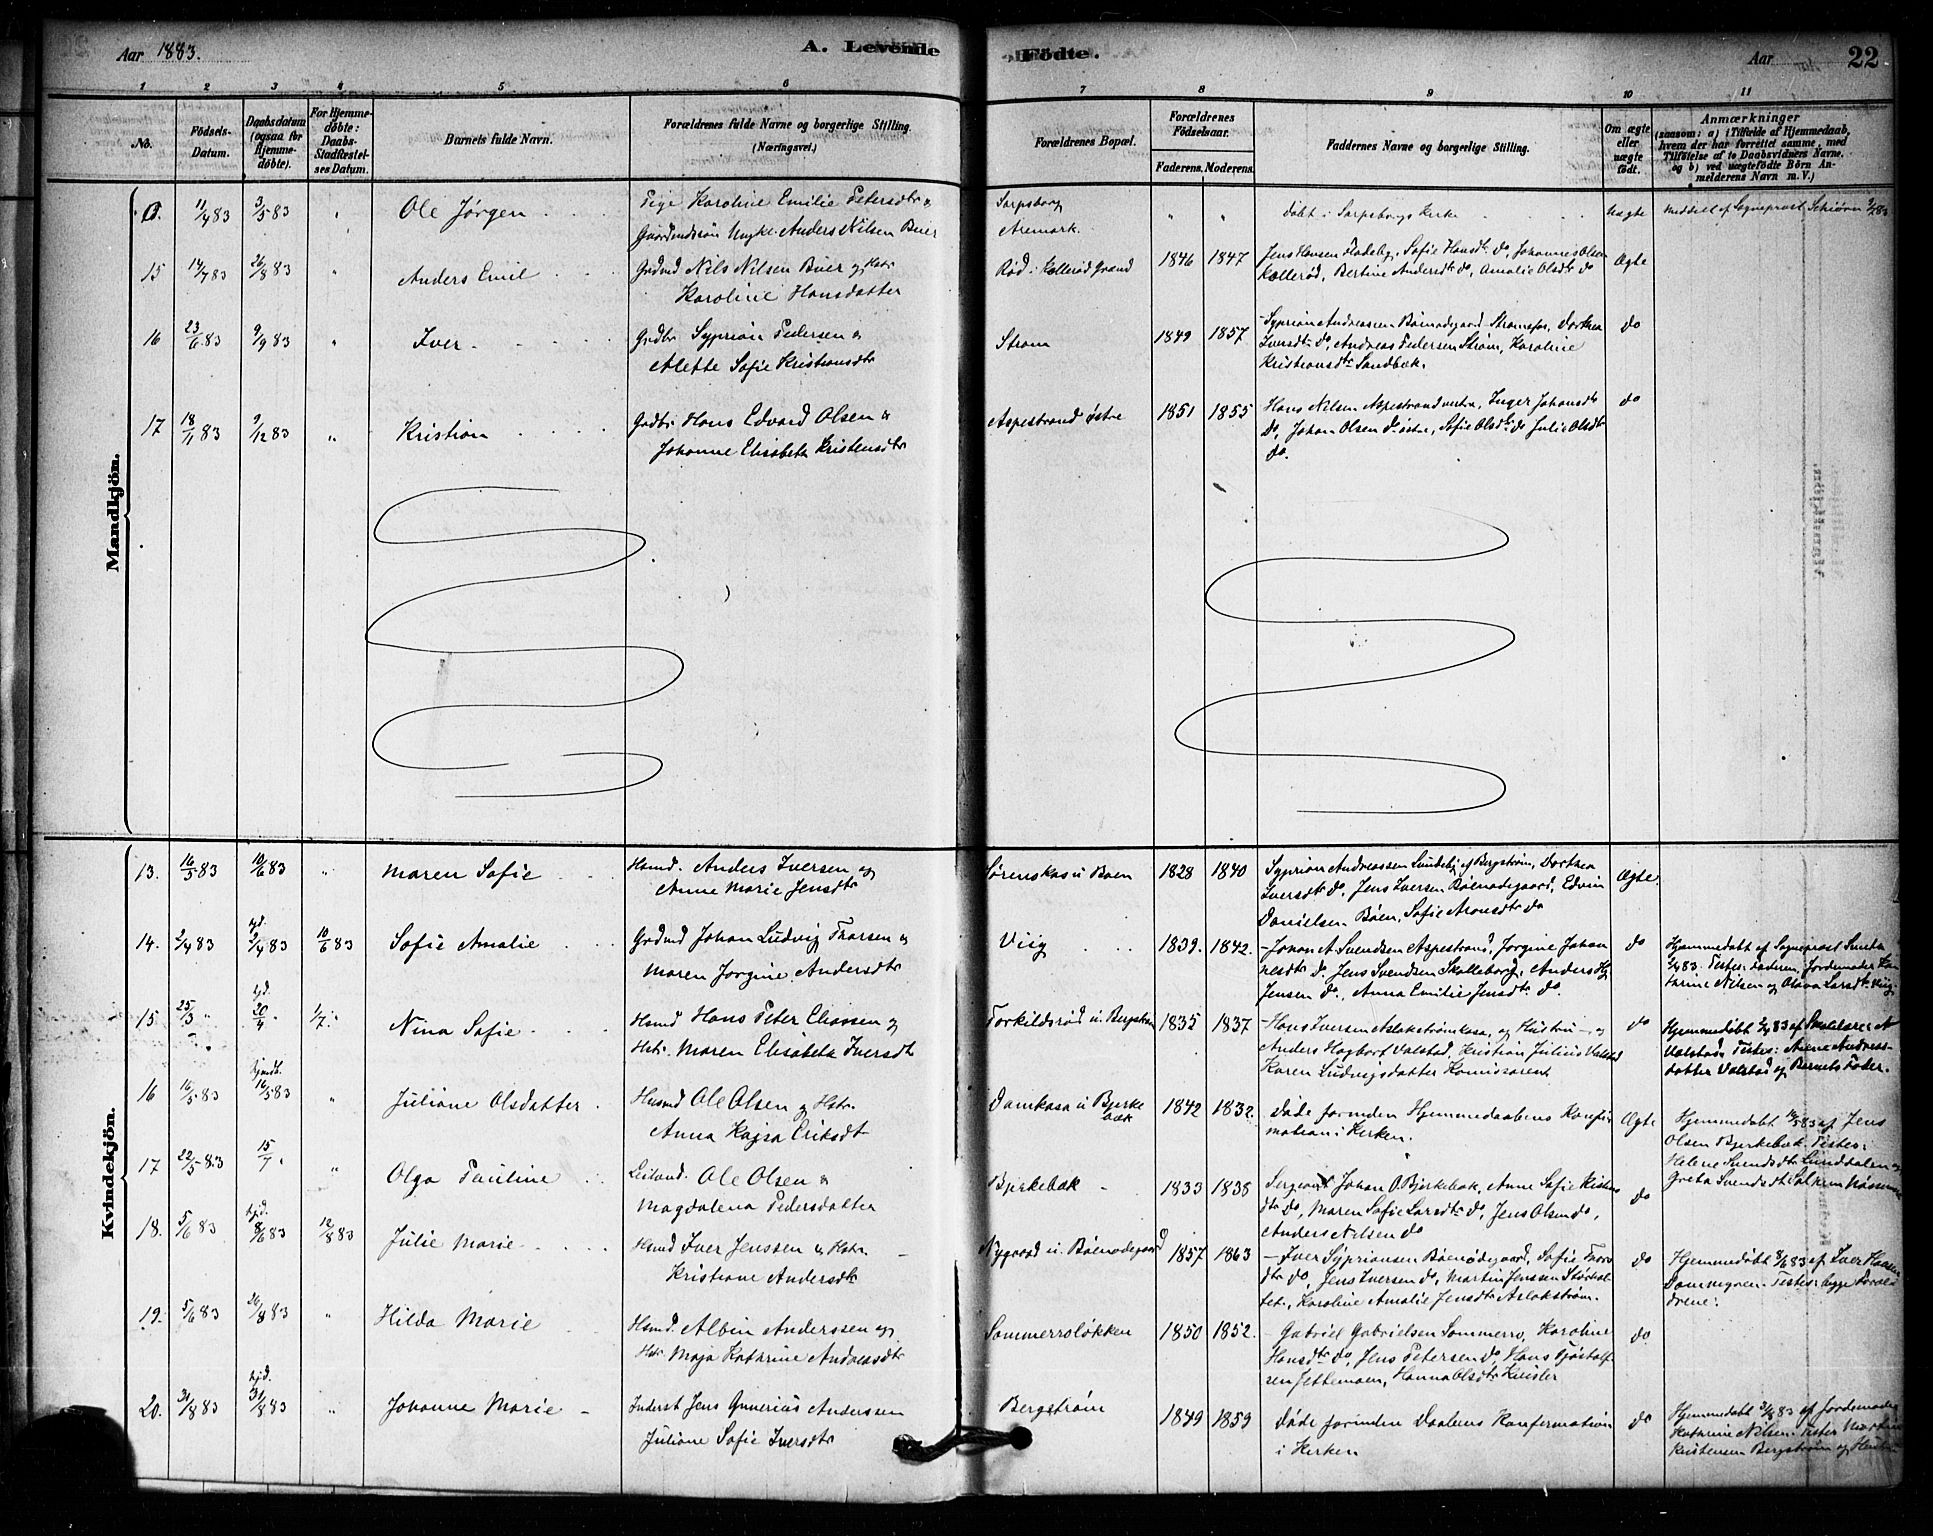 Aar 1883.
A. Levende Födte.
Aar
22
1 2 3 4 5 6 7 8 9 10 11
No.
Födsels-
Datum.
Daabsdatum
(ogsaa for
Hjemme-
döbte).
For Hjemme-
döbte:
Daabs-
Stadfæstel-
ses Datum.
Barnets fulde Navn.
Forældrenes fulde Navne og borgerlige Stilling.
(Næringsvei.)
Forældrenes Bopæl.
Forældrenes
Födselsaar.
Faderens. Moderens.
Faddernes Navne og borgerlige Stilling.
Om ægte
eller
uægte
födt.
Anmærkninger
(saasom: a) i Tilfælde af Hjemmedaab,
hvem der har forrettet samme, med
Tilföielse af to Daabsvidners Navne,
og b) ved uægtefödte Börn An-
melderens Navn m. V.)
Mandkjön.
0. 11/4 83 3/5 83 " Ole Jørgen Pige Karoline Emilie Petersdtr &
Gaardmandssøn Ungkl. Anders Nilsen Buer
Sarpsborg
Aremark.
" " døbt i Sarpsborgs Kirke Uægte Meddelt af Sogneprest Schiørn
15 14/7 83 26/8 83 " Anders Emil Grdmd Nils Nilsen Buer og Hstr
Karoline Hansdatter
Rød i Kollerød Grænd 1846 1847 Jens Hansen Fladeby, Sofie Hansdtr do, Johannes Olsen
Kollerød, Bertine Andersdtr do, Amalie Olsdtr do
Ægte
16 23/6 83 9/9 83 " Iver Grdbr Syprian Pedersen &
Alette Sofie Kristiansdtr
Strøm 1849 1857 Syprian Andreassen Bønødegaard Strømsfos, Dorthea
Iversdtr do, Andreas Pedersen Strøm, Karoline
Kristiansdtr Sandbæk.
do
17 18/11 83 9/12 83 " Kristian Grdbr. Hans Edvard Olsen &
Johanne Elisabeth Kristensdtr
Aspestrand østre 1851 1855 Hans Nilsen Aspestrand vestre, Inger Johansdtr
do, Johan Olsen do østre, Sofie Olsdtr do Julie Olsdtr
do.
do
Kvindekjön.
13. 16/3 83 10/6 83 " Maren Sofie Hsmd. Anders Iversen og
Anne Marie Jensdtr
Sørenskas u Bøen 1828 1840 Syprian Andreassen Lundeby af Bergstrøm, Dorthea
Iversdtr do, Jens Iversen Bøenødegaard, Edvin
Danielsen Bøen, Sofie Aronsdtr do
Ægte
14. 2/4 83 hjd. 2/4 83 10/6 83 Sofie Amalie Grdmd Johan Ludvig Thorsen &
Maren Jørgine Andersdtr
Viig 1839. 1842. Johan A. Svendsen Aspestrand, Jørgine Johan
nesdtr do. Jens Svendsen Skolleborg, Anders Hj
Jensen do, Anna Emilie Jensdtr do.
do Hjemmedøbt af Sogneprest
2/4 83. Testes: Faderen, Jordemoder Ka-
thrine Nilsen og Olava Larsdtr Viig
15 25/3 " hjd. 20/4 " 1/7 " Nina Sofie Hsmd Hans Peter Eliassen og
Hstr. Maren Elisabeth Iversdt
Torkildsrød u. Bergstrøm 1835 1837 Hans Iversen Aslakstrømkasa og Hustru og
Anders Hagbart Valstad, Kristian Julius Valstad
Karen Ludvigsdatter Komissarent
do Hjemmedøbt 83 af Skolelærer A
Valstad. Testes: Anne Andreas-
datter Valstad og Barnets Fader.
16 16/5 83 hjmdb. 16/5 83 " Juliane Olsdatter Husmd Ole Olsen og Hstr.
Anna Kajsa Eriksdt
Damkasa u Bjerke
bæk
1842 1832 Døde forinden Hjemmedaabens Konfir
mation i Kirken.
Ægte Hjemmedøbt 16/5 83 af Jens
Olsen Bjerkebæk. Testes:
Helene Svendsdtr Lunddalen og
Greta Svendsdt
17 22/5 83 15/7 " " Olga Pauline Leilænd. Ole Olsen &
Magdalena Pedersdatter
Bjerkebæk 1833 1838 Sergeant Johan O. Bjerkebæk, Anne Sofie
dtr do, Maren Sofie Larsdtr do, Jens Olsen do,
Anders Nilsen do
do
18. 5/6 83 hjd. 8/6 83 12/8 83 Julie Marie Hsmd Iver Jenssen & Hstr.
Kristiane Andersdtr
Nygaard u. Bøenødegaard 1857 1863 Iver Syprianssen Bøenødegaard, Sofie Thors
dtr do, Jens Iversen do, Martin Jenssen
Karoline Amalie Jensdtr Aslakstrøm.
do Hjemmedøbt 8/6 83 af Iver Hansen
Testes: begge Foræl-
drene.
19. 5/6 83 26/8 83 " Hilda Marie Hsmd. Albin Anderssen og
Hstr Maja Kathrine Andreasdtr
Sommerroløkken 1850 1852. Gabriel Gabrielsen Sommerro, Karoline
Hansdtr do, Jens Petersen do, Hans Tjostolf-
sen Jettemoen, Hanna Olsdtr
do
20. 31/8 83 hjd. 31/8 83 " Johanne Marie Inderst Jens Gunerius Anderssen
Juliane Sofie Iversdtr
Bergstrøm 1849 1859 Døde forinden Daabens Konfirmation
i Kirken
do Hjemmedøbt 31/8 83 af Jordemoder
Kathrine Nilsen. Testes Martin
Kristensen Bergstrøm og Hustru